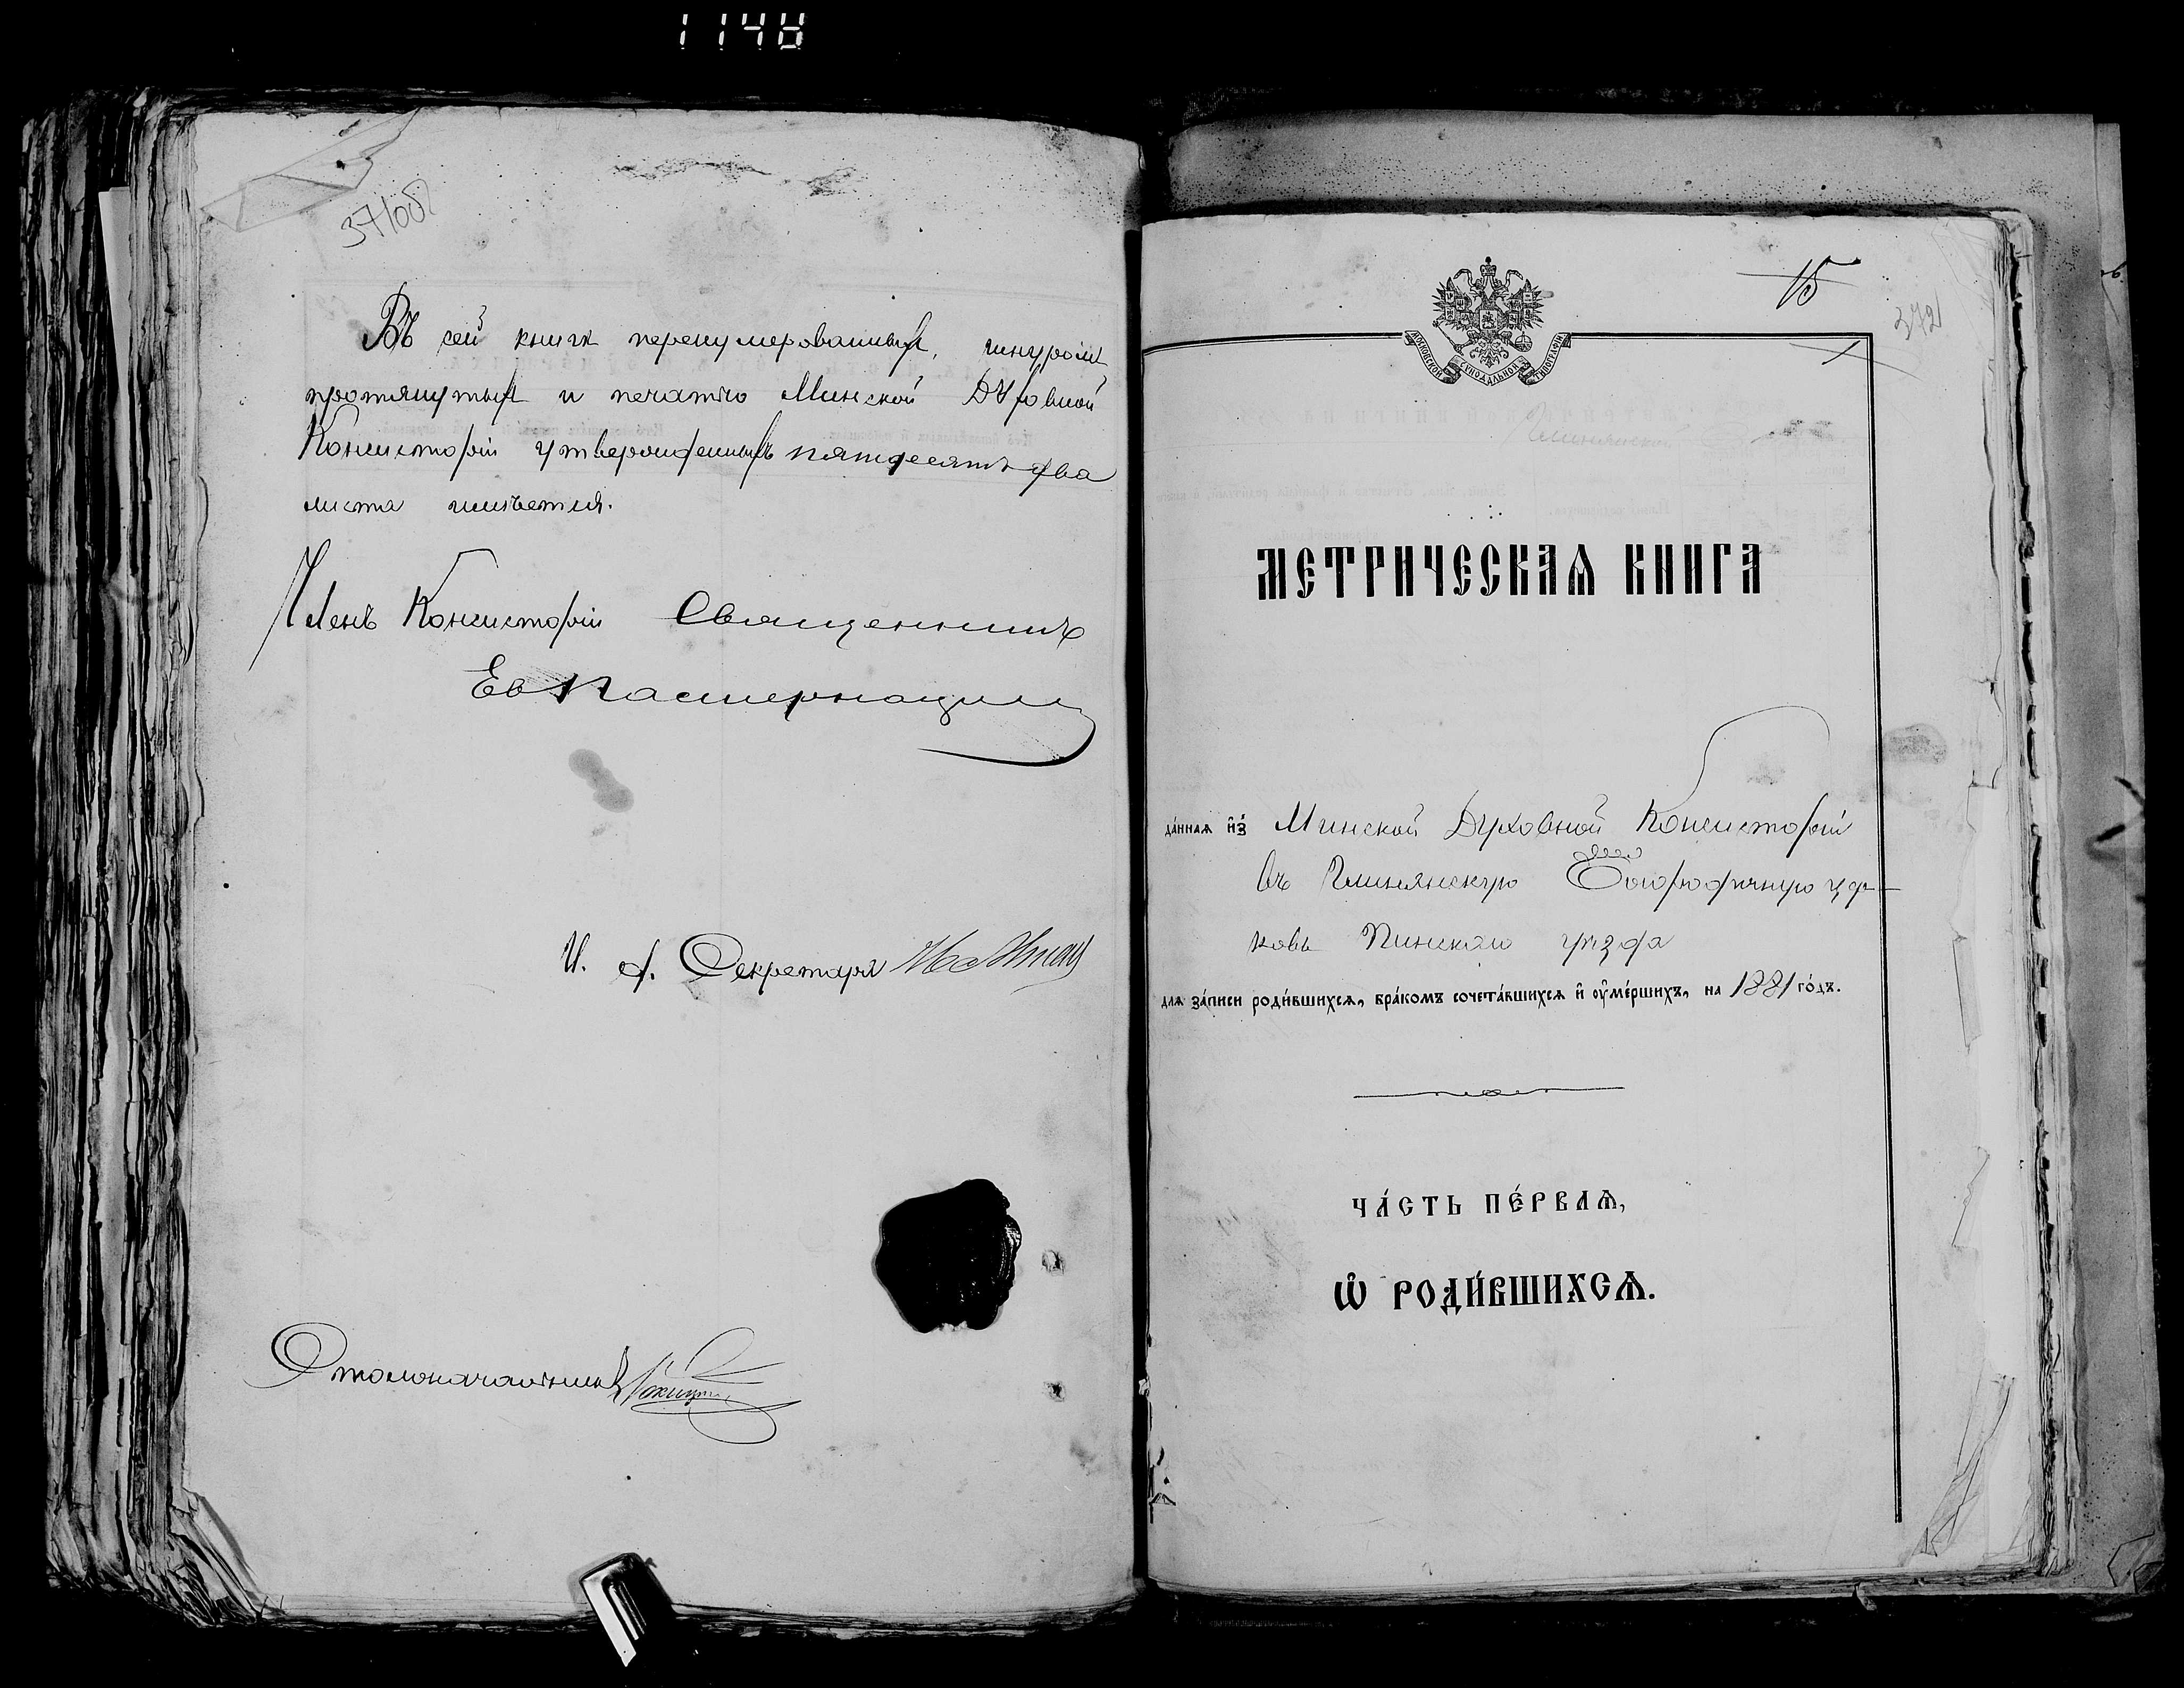 1148
371об
Въ сей книгѣ перенумерованныхъ, шнуромъ
протянутыхъ и печатію Минской Духовной
Консисторіи утвержденныхъ пятдесятъ два
листа имѣется.
Членъ Консисторіи Священникъ
И. д. Секретаря
Столоначальникъ
15
372
1
МОСКОВСКОЙ СѴНОДАЛЬНОЙ ТИПОГРАФІИ
МЕТРИЧЕСКАѦ КНИГА
да́ннаѧ и҆з̾ Минской Духовной Консисторіи
въ Богородичную цер-
ковь Пинскаго уѣзда
длѧ за́писи роди́вшихсѧ, бра́комъ сочета́вшихсѧ и҆ оу҆ме́ршихъ, на 1881 го́дъ.
ЧА́СТЬ ПЕ́РВАѦ,
Ѡ҆ РОДИ́ВШИХСѦ.